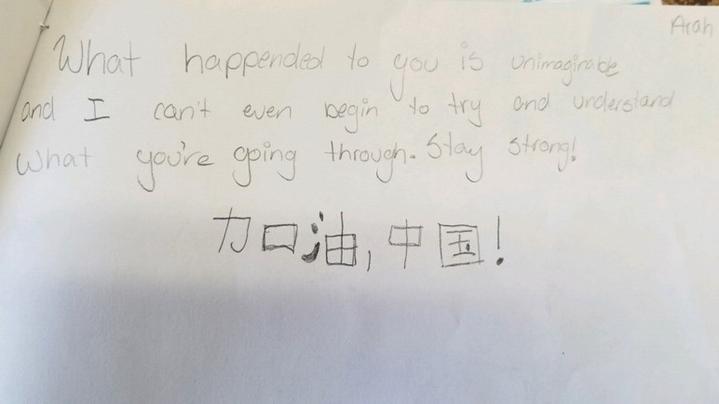 Arah
What happended to you is unimaginable
and I can't even begin to try and understand
what you're going through. Stay strong!
加油,中国!